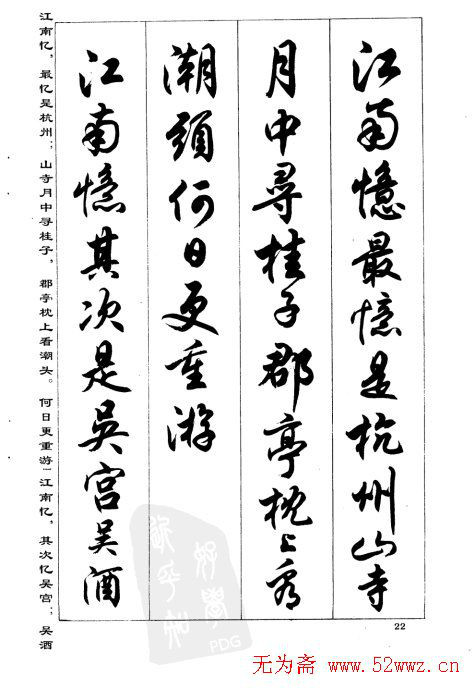 江南憶最憶是杭州山寺
月中尋桂子郡亭枕上看
潮頭何日更重游
江南憶其次是吳宫吴酒
江南忆，最忆是杭州；山寺月中寻桂子，郡亭枕上看潮头。何日更重游「江南忆，其次忆吴宫；吴酒
22
PDG
无为斋 www.52wwz.cn